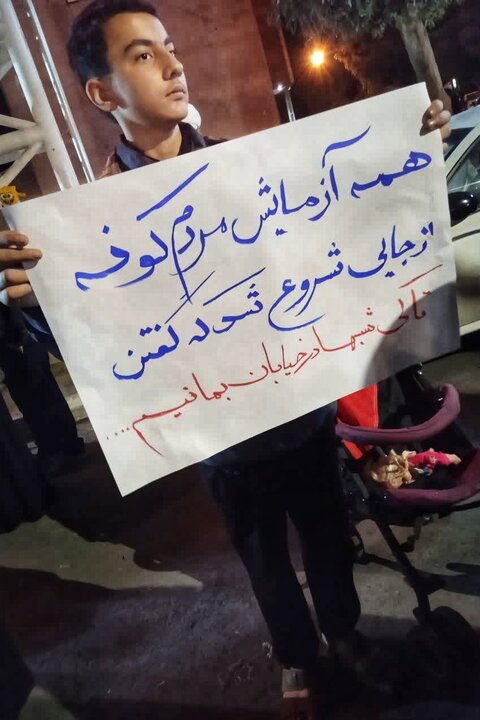 همه آزمایش مردم کوفه
از جایی شروع شد که گفتن
تا کی شبها در خیابان بمانیم....